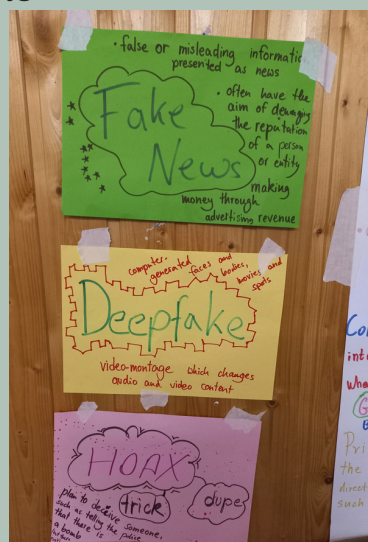 • false or misleading informatic
presented as news
Fake
News
• often have the
aim of damaging
the reputation
of a person
or entity
making
money through
advertising revenue
computer-
generated faces and
bodies,
movies and
spots
Deepfake
video-montage which changes
audio and video content
HOAX
trick
dupe
plan to deceive someone,
such as telling the police
that there is
a bomb
Co
int
Wha
G
Pri
the
direct
such